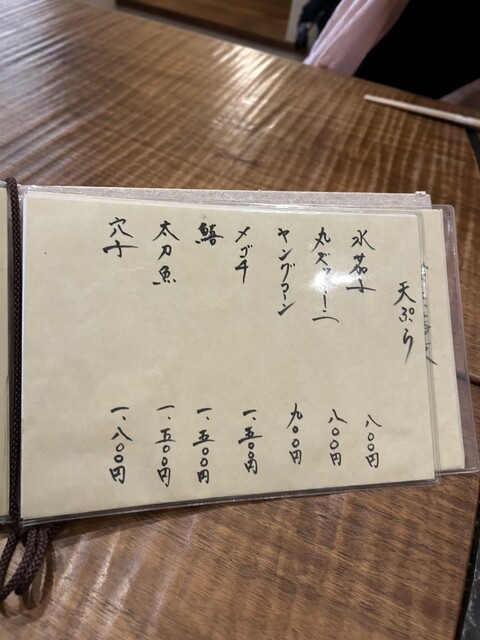 天ぷら
水茄子 八〇〇円
丸ズッキーニ 八〇〇円
ヤングコーン 九〇〇円
メゴチ 一、五〇〇円
鱚 一、五〇〇円
太刀魚 一、五〇〇円
穴子 一、八〇〇円